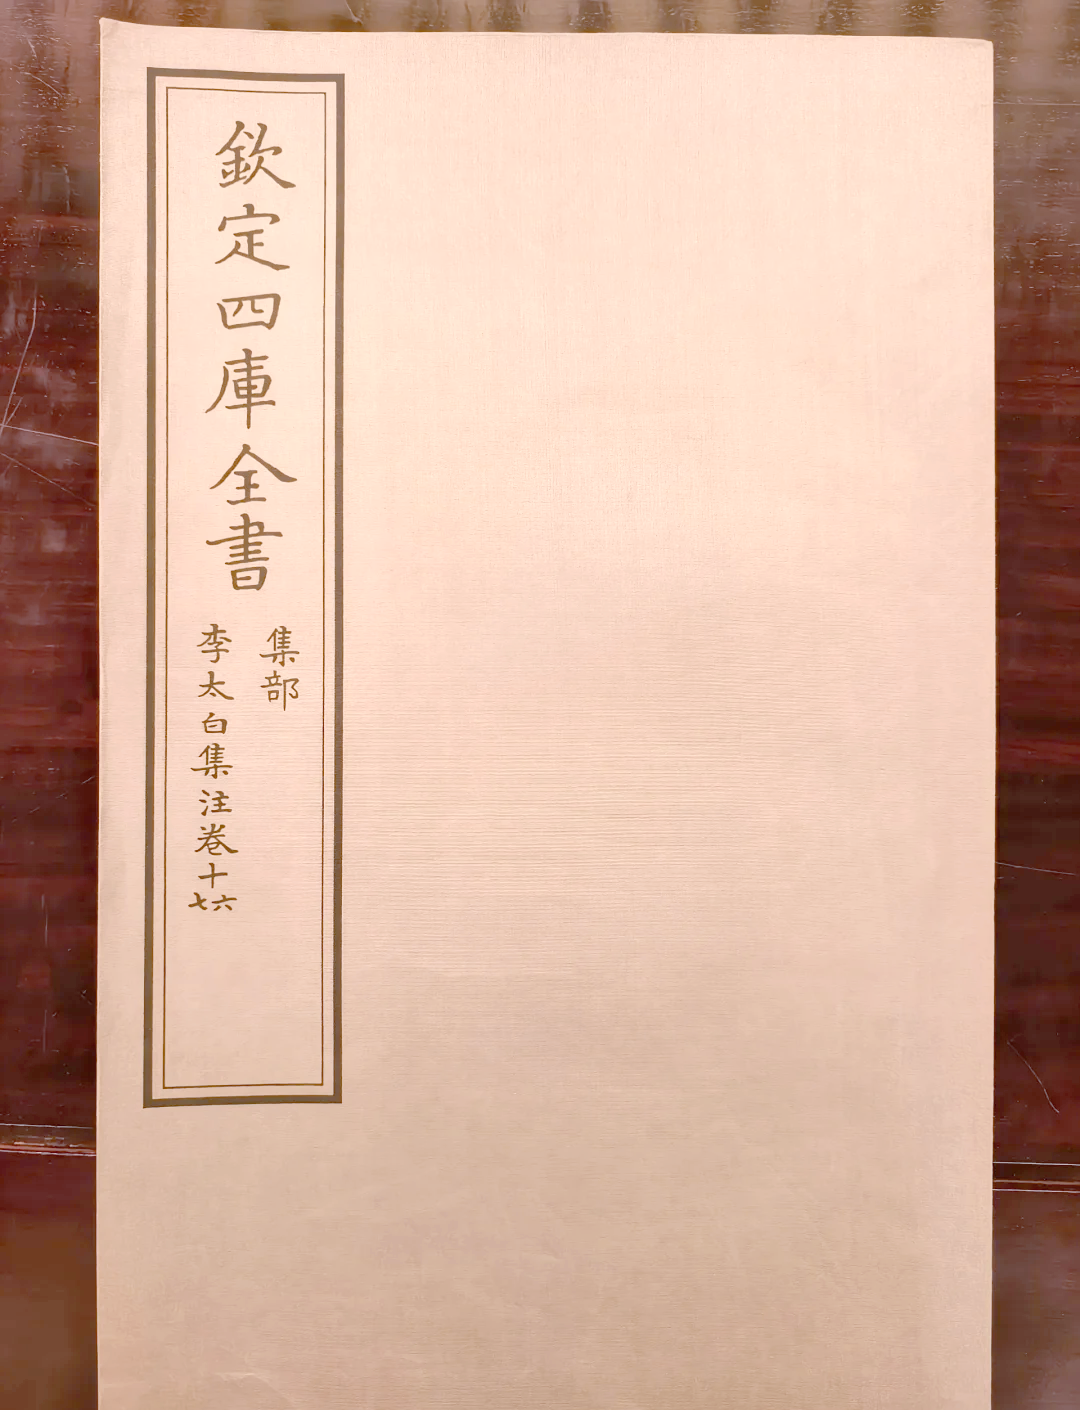 欽定四庫全書
集部
李太白集注卷十六七